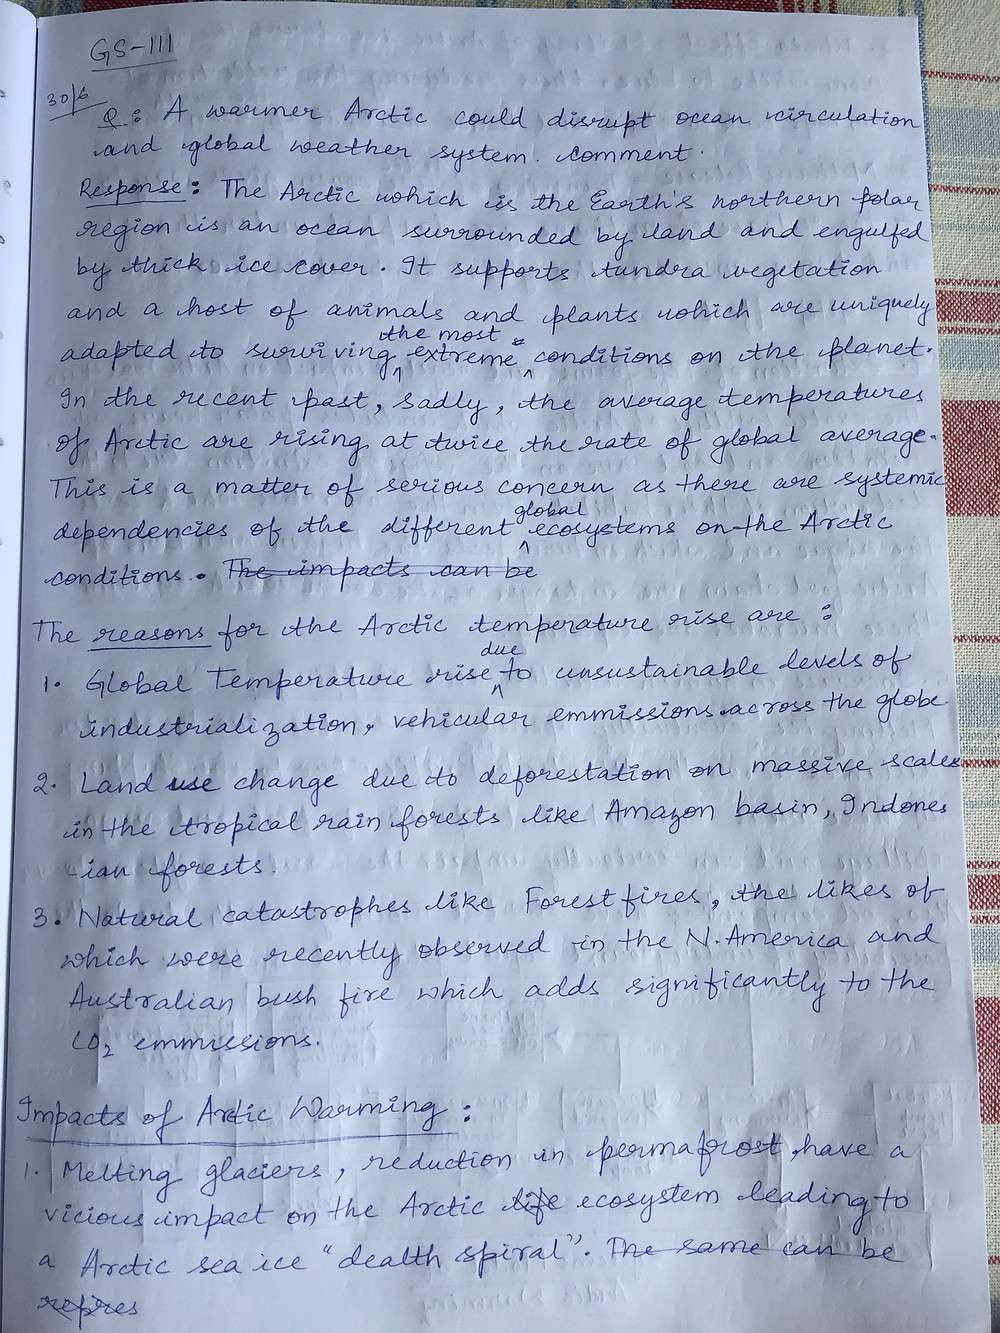 GS-III
30/6
Q: A warmer Arctic could disrupt ocean circulation
and global weather system. Comment.
Response: The Arctic which is the Earth's northern polar
region is an ocean surrounded by land and engulfed
by thick ice cover. It supports tundra vegetation
and a host of animals and plants which are uniquely
adapted to surviving the most extreme conditions on the planet.
In the recent past, sadly, the average temperatures
of Arctic are rising at twice the rate of global average.
This is a matter of serious concern as there are systemic
dependencies of the different global ecosystems on the Arctic
conditions. The impacts can be
The reasons for the Arctic temperature rise are :
1. Global Temperature rise due to unsustainable levels of
industrialization, vehicular emmissions across the globe
2. Land use change due to deforestation on massive scales
in the tropical rain forests like Amazon basin, Indones
-ian forests.
3. Natural catastrophes like Forest fires, the likes of
which were recently observed in the N. America and
Australian bush fire which adds significantly to the
CO2 emmissions.
Impacts of Arctic Warming :
1. Melting glaciers, reduction in permafrost have a
vicious impact on the Arctic life ecosystem leading to
a Arctic sea ice "dealth spiral". The same can be
repres